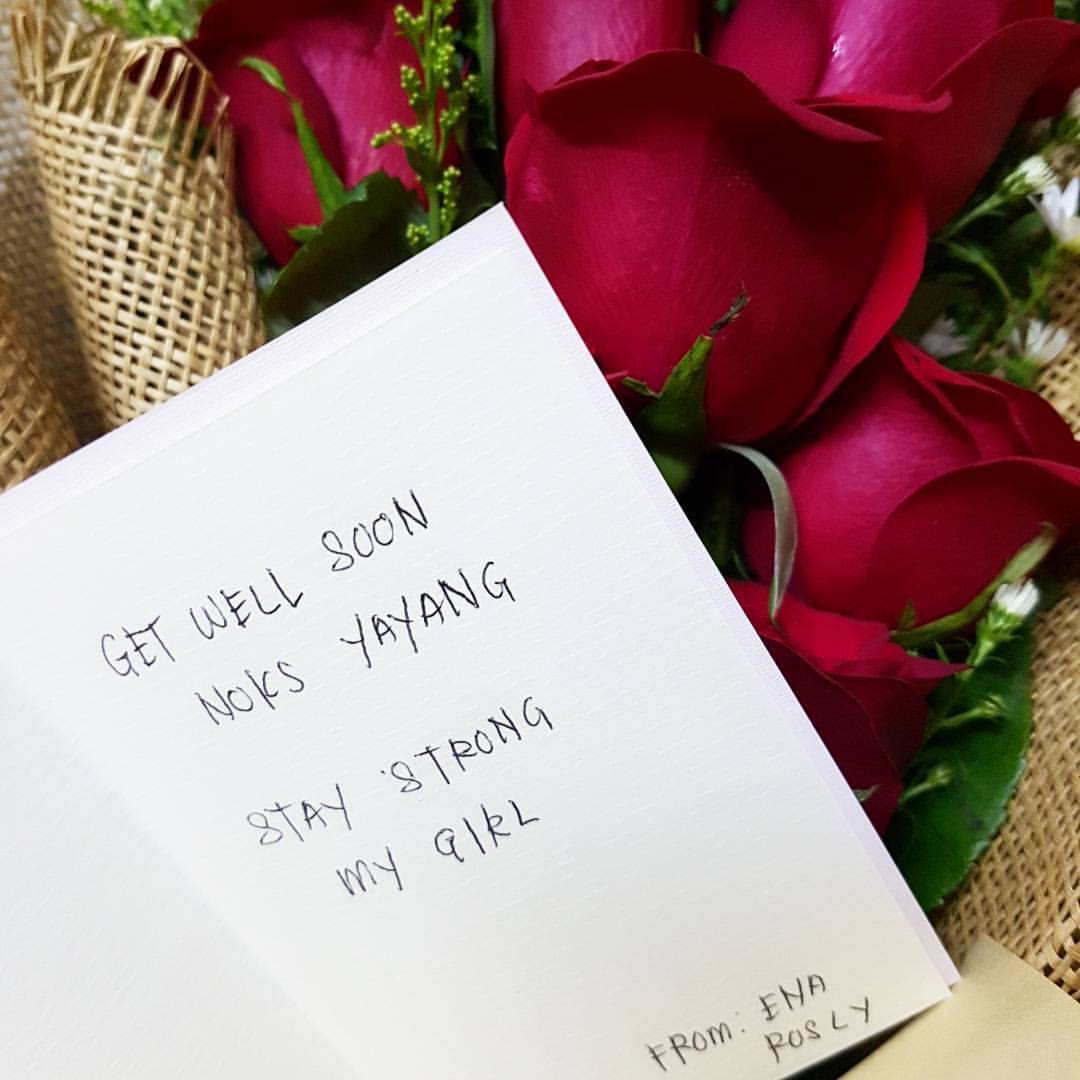 GET WELL SOON
NOKS YAYANG
STAY STRONG
MY GIRL
FROM: ENA
ROSLY